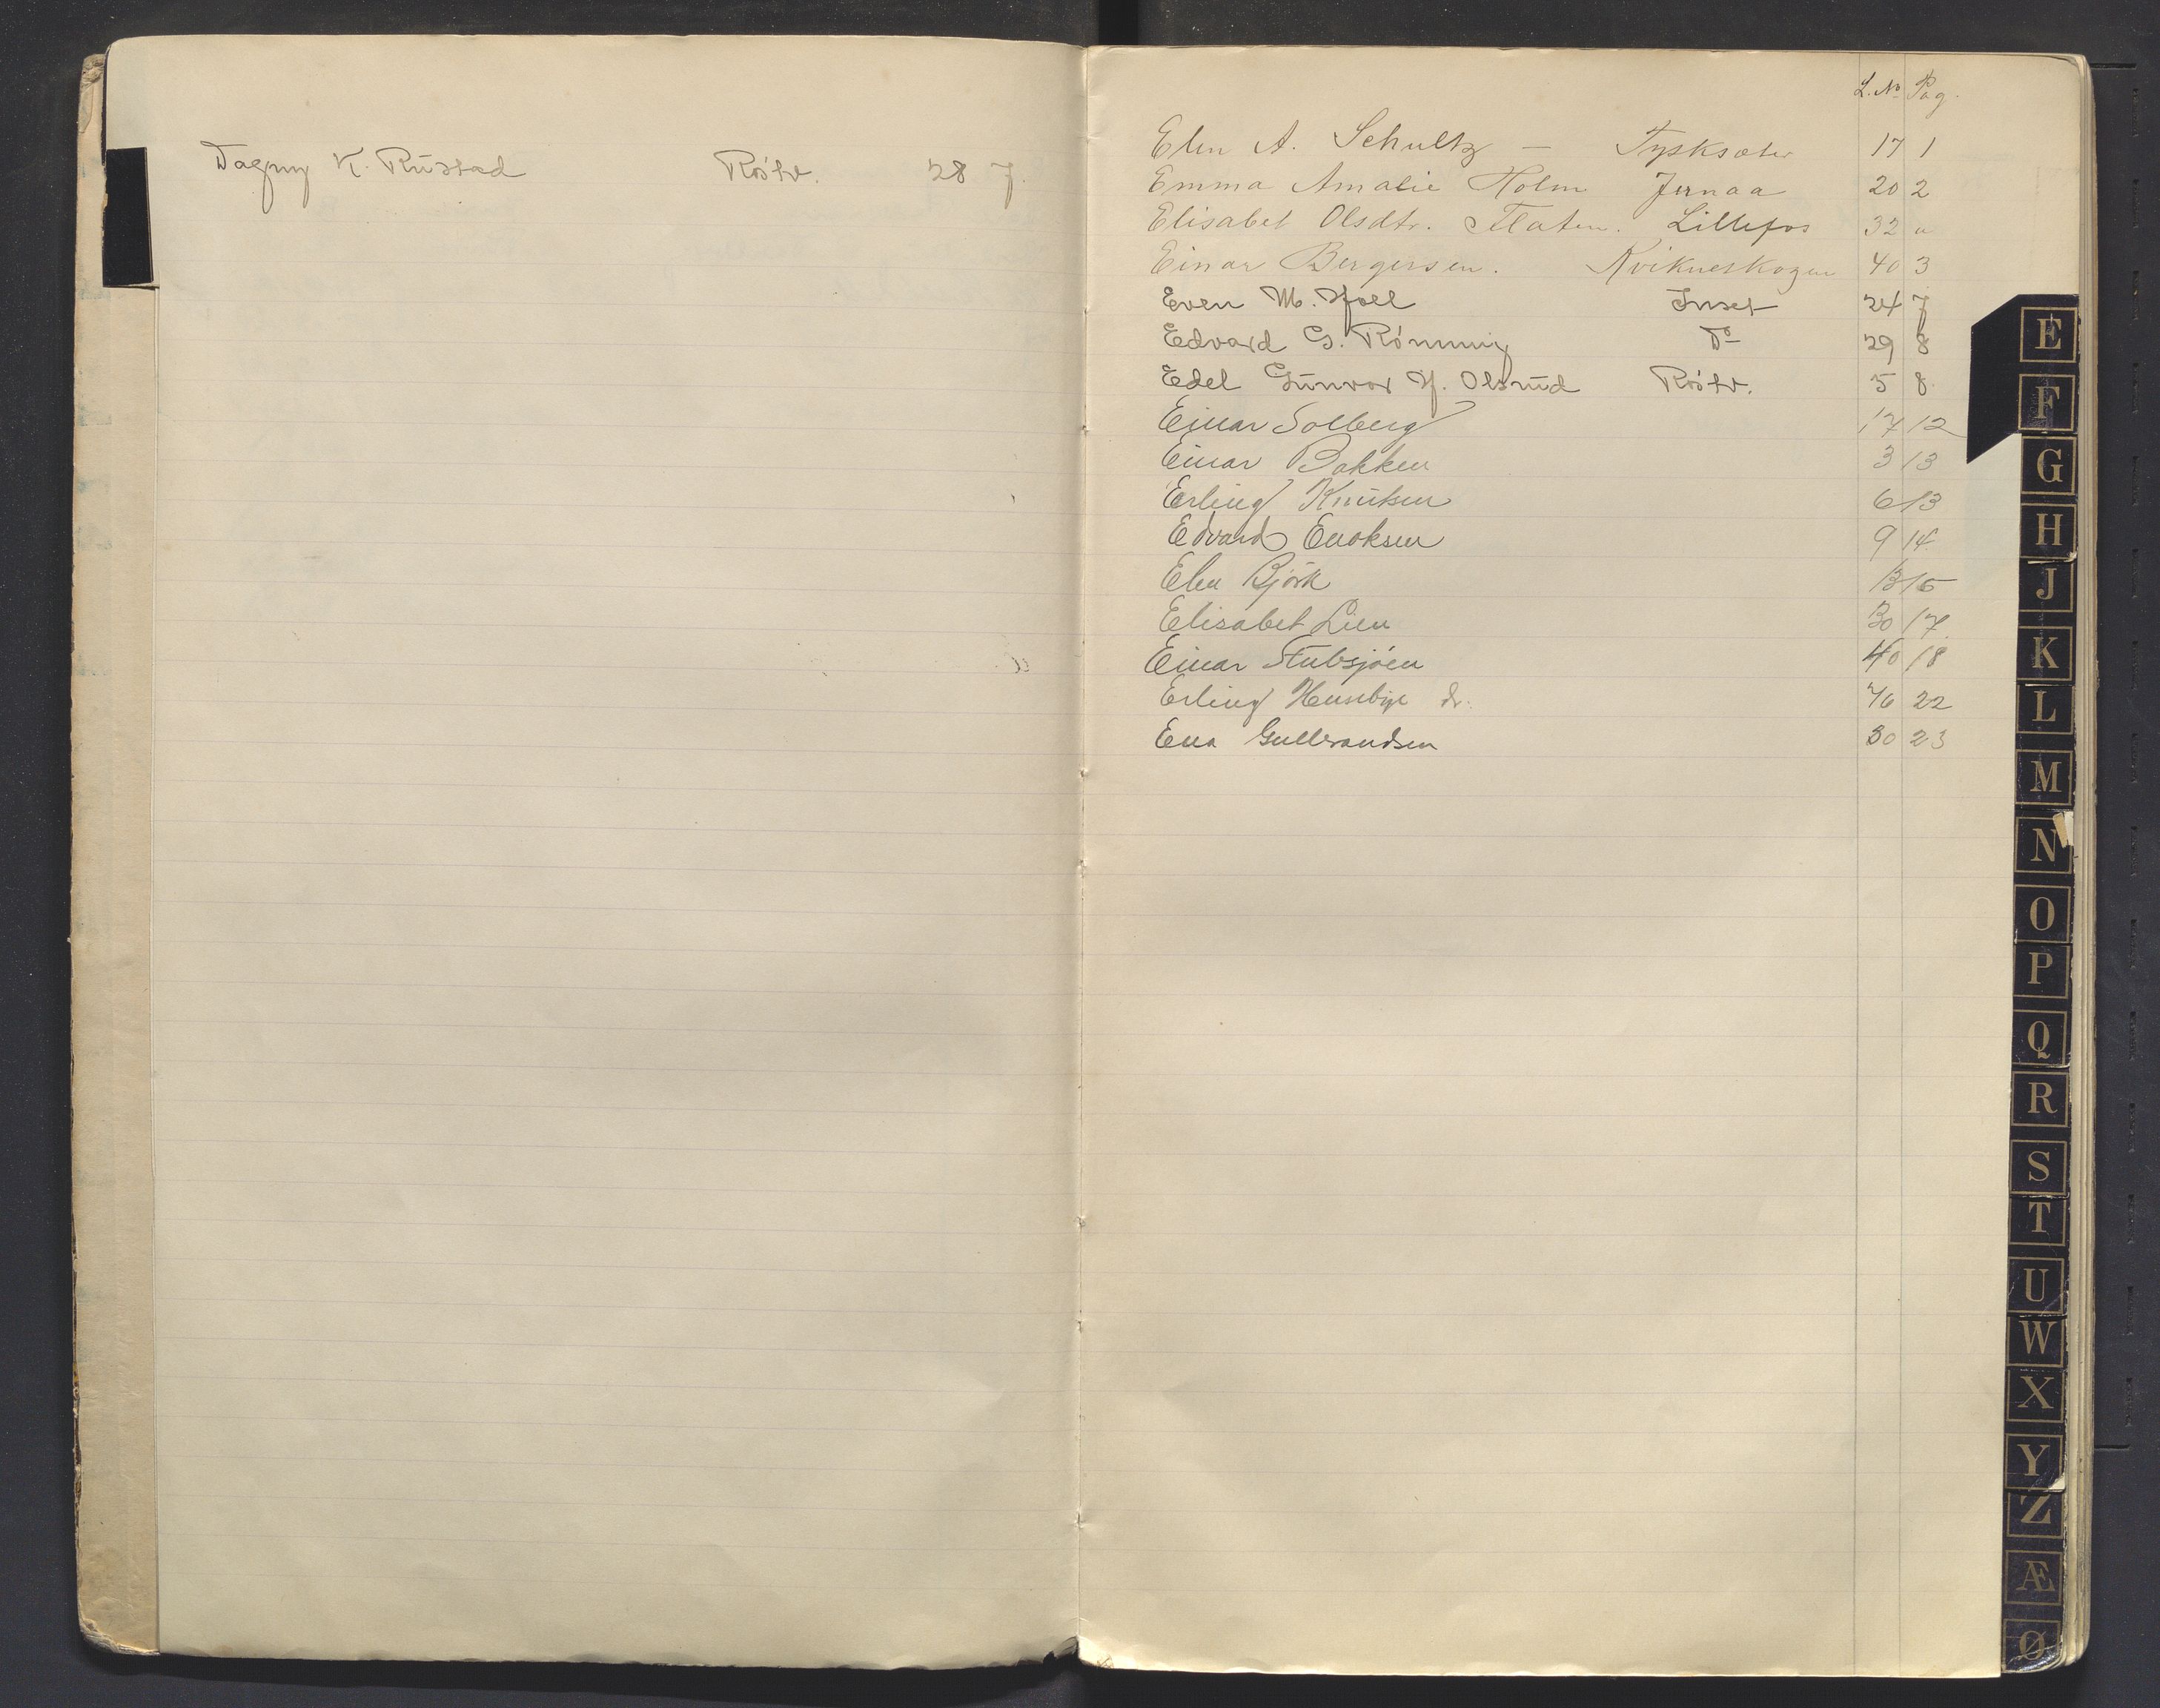 Dagny K. Rustad Röstv. 28 7.
L. No Pag.
Elen A. Schultz – Tysksæter 17 1
Emma Amalie Holm Jernaa 20 2
Elisabet Olsdtr. Flaten. Lillefos 32 "
Einar Bergersen. Kvikneskogen 40 3
Even M. Hoel Inset 24 7
Edvard G. Rönning Do 29 8
Edel Gunvor H. Olsrud Röstv. 5 8
Einar Solberg 17 12
Einar Bakken 3 13
Erling Knutsen 6 13
Edvard Enoksen 9 14
Elen Björk 13 15
Elisabet Lien 30 17
Einar Stubsjöen 40 18
Erling Husebye dr. 46 22
Eva Gulbrandsen 30 23
E
F
G
H
J
K
L
M
N
O
P
Q
R
S
T
U
W
X
Y
Z
Æ
Ø